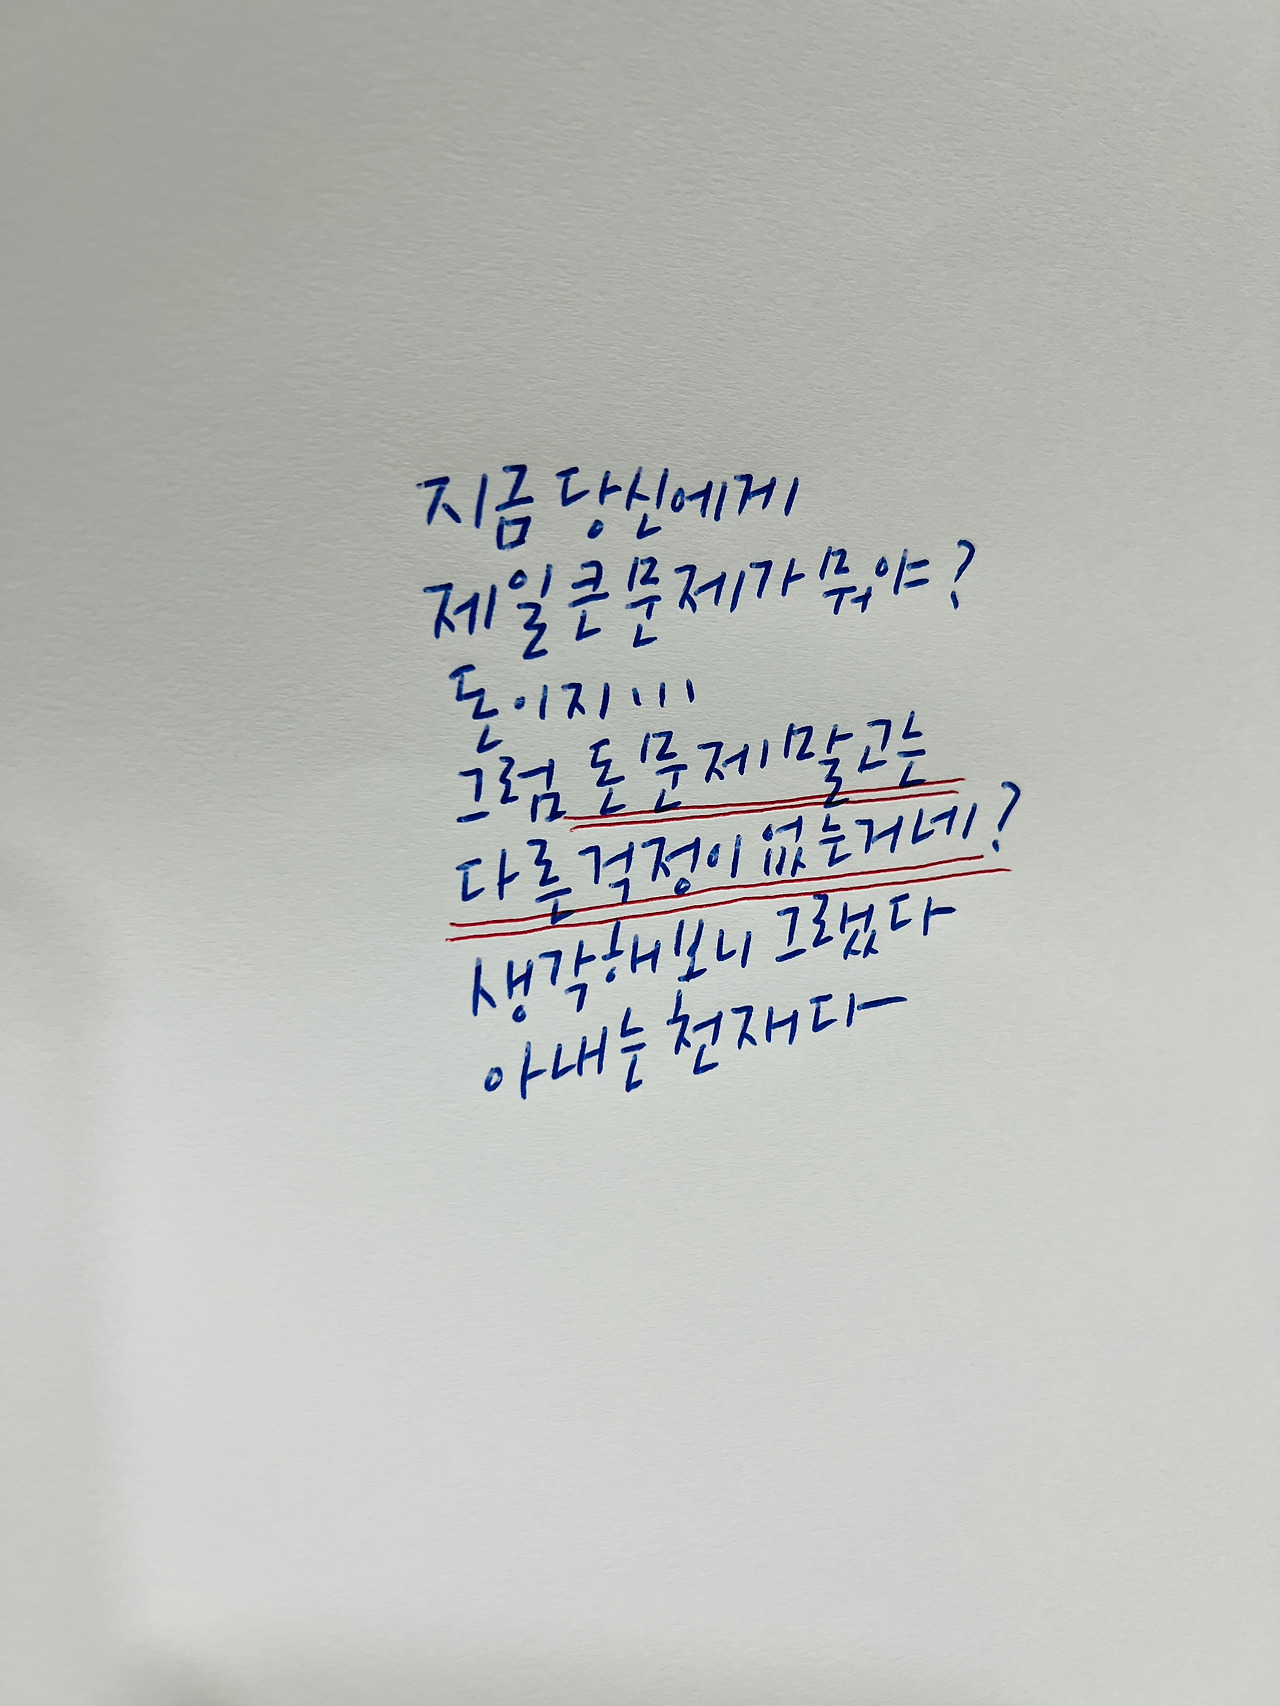 지금 당신에게
제일 큰 문제가 뭐야?
돈이지...
그럼 돈 문제 말고는
다른 걱정이 없는거네?
생각해보니 그랬다
아내는 천재다